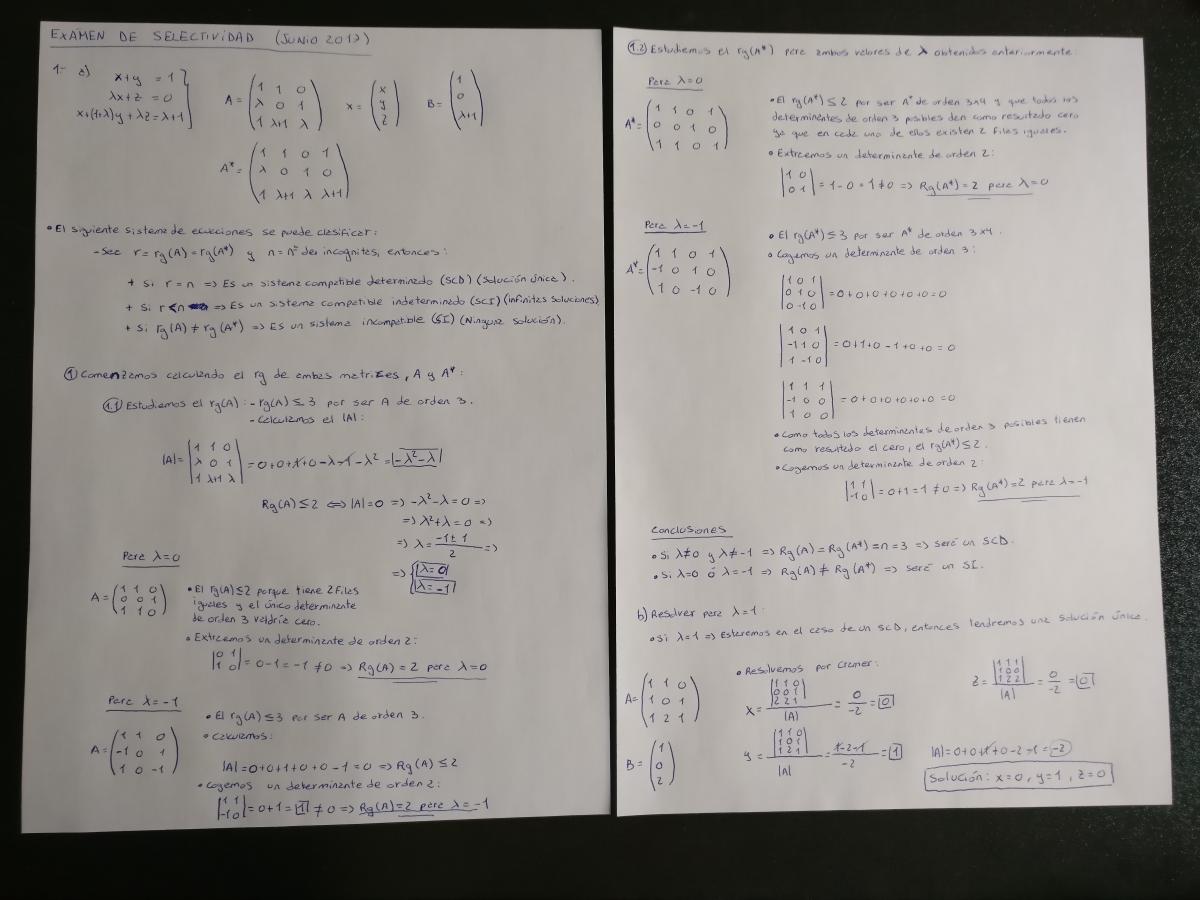 EXÁMEN DE SELECTIVIDAD (JUNIO 2017)
1- a) x+y = 1
λx+z = 0
x+(1+λ)y+λz=λ+1
A= (1 1 0
λ 0 1
1 λ+1 λ)
X= (x
y
z)
B= (1
0
λ+1)
A*= (1 1 0 1
λ 0 1 0
1 λ+1 λ λ+1)
• El siguiente sistema de ecuaciones se puede clasificar:
- Sea r = rg(A) = rg(A*) y n = nº des incognitas, entonces:
+ Si r = n => Es un sistema compatible determinado (SCD) (Solución única).
+ Si r < n => Es un sistema compatible indeterminado (SCI) (infinitas soluciones)
+ Si rg(A) ≠ rg(A*) => Es un sistema incompatible (SI) (Ninguna solución).
① Comenzamos calculando el rg de ambas matrices, A y A*:
1.1 Estudiemos el rg(A): - rg(A) ≤ 3 por ser A de orden 3.
- Calculamos el |A|:
|A|= |1 1 0
λ 0 1
1 λ+1 λ| = 0+0+1+0-λ-1-λ² = -λ²-λ
Rg(A) ≤ 2 <=> |A|=0 => -λ²-λ=0 =>
=> λ²+λ=0 =>
=> λ = -1±1/2 =>
=> { λ=0
λ=-1
Para λ=0
A= (1 1 0
0 0 1
1 1 0)
• El rg(A)≤2 porque tiene 2 filas
iguales y el único determinante
de orden 3 valdría cero.
• Extraemos un determinante de orden 2:
|0 1
1 0| = 0-1 = -1 ≠0 => Rg(A) = 2 para λ=0
Para λ=-1
• El rg(A) ≤3 por ser A de orden 3.
• Calculamos:
A= (1 1 0
-1 0 1
1 0 -1)
|A|=0+0+1+0+0-1=0 => Rg(A) ≤ 2
• Cogemos un determinante de orden 2:
|1 1
-1 0| = 0+1 = 1 ≠ 0 => Rg(A)=2 para λ=-1
1.2 Estudiemos el rg(A*) para ambos valores de λ obtenidos anteriormente:
Para λ=0
A*= (1 1 0 1
0 0 1 0
1 1 0 1)
• El rg(A*) ≤ 2 por ser A* de orden 3x4 y que todos los
determinantes de orden 3 posibles den como resultado cero
ya que en cada uno de ellos existen 2 filas iguales.
• Extraemos un determinante de orden 2:
|1 0
0 1| = 1-0 = 1≠0 => Rg(A*)=2 para λ=0
Para λ=-1
A*= (1 1 0 1
-1 0 1 0
1 0 -1 0)
• El rg(A*) ≤ 3 por ser A* de orden 3x4.
• Cogemos un determinante de orden 3:
|1 0 1
0 1 0
0 -1 0| = 0+0+0+0+0+0=0
|1 0 1
-1 1 0
1 -1 0| = 0+1+0-1+0+0 = 0
|1 1 1
-1 0 0
1 0 0| = 0+0+0+0+0+0 =0
• Como todos los determinantes de orden 3 posibles tienen
como resultado el cero, el rg(A*)≤2.
• Cogemos un determinante de orden 2:
|1 1
-1 0| = 0+1 = 1 ≠0 => Rg(A*)=2 para λ=-1
Conclusiones
• Si λ≠0 y λ≠-1 => Rg(A) = Rg(A*)=n=3 => será un SCD.
• Si λ=0 ó λ=-1 => Rg(A) ≠ Rg(A*) => será un SI.
b) Resolver para λ=1:
• Si λ=1 => Estaremos en el caso de un SCD, entonces tendremos una solución única.
A= (1 1 0
1 0 1
1 2 1)
B= (1
0
2)
• Resolvemos por Cramer:
X= |1 1 0
0 0 1
2 2 1| / |A| = 0/-2 = 0
y= |1 1 0
1 0 1
1 2 1| / |A| = 1-2-1/-2 = 1
z= |1 1 1
1 0 0
1 2 2| / |A| = 0/-2 = 0
|A|=0+0+1+0-2-1=-2
Solución: x=0, y=1, z=0